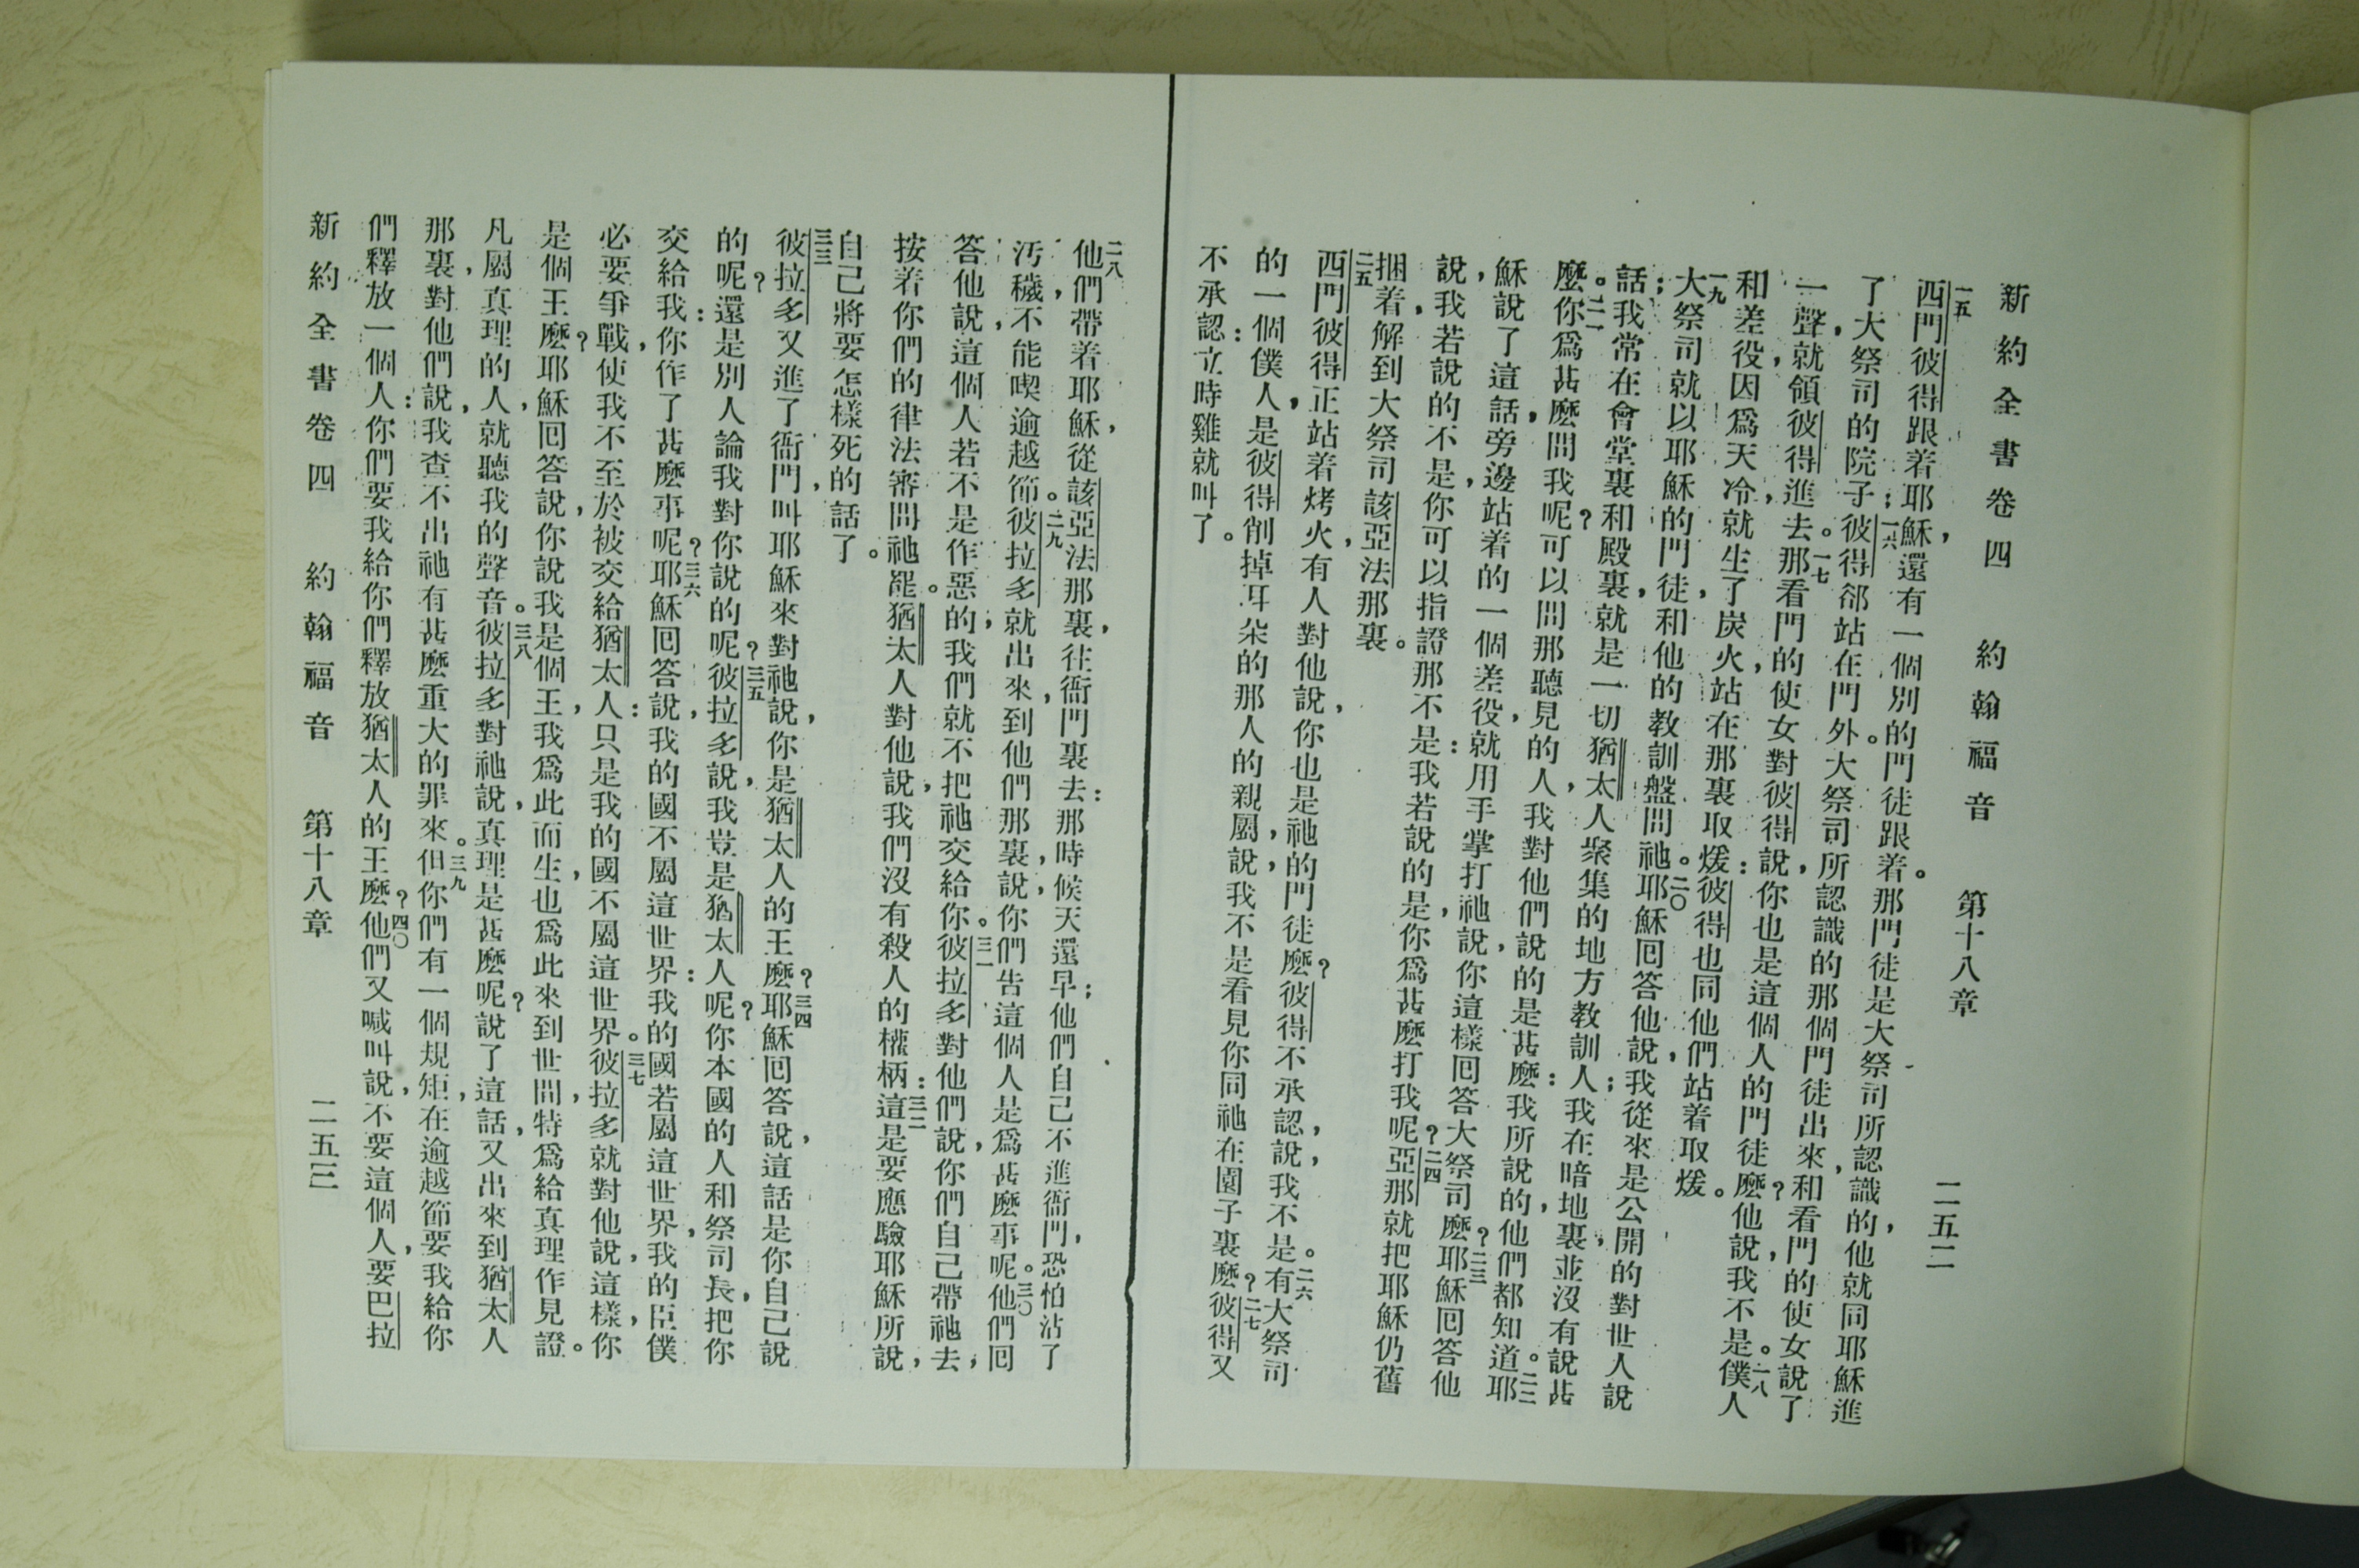 新約全書卷四　約翰福音　第十八章　二五二
一五西門彼得跟着耶穌，還有一個別的門徒跟着。那門徒是大祭司所認識的，他就同耶穌進
了大祭司的院子；一六彼得卻站在門外。大祭司所認識的那個門徒出來，和看門的使女說了
一聲，就領彼得進去。一七那看門的使女對彼得說，你也是這個人的門徒麽？他說，我不是。一八僕人
和差役，因爲天冷，就生了炭火，站在那裏取煖：彼得也同他們站着取煖。
一九大祭司就以耶穌的門徒，和他的教訓盤問祂。二〇耶穌囘答他說，我從來是公開的對世人說
話；我常在會堂裏，和殿裏，就是一切猶太人聚集的地方教訓人；我在暗地裏，並沒有說甚
麽。二一你爲甚麽問我呢？可以問那聽見的人，我對他們說的是甚麽：我所說的，他們都知道。二二耶
穌說了這話，旁邊站着的一個差役，就用手掌打祂，說，你這樣囘答大祭司麽？二三耶穌囘答他
說，我若說的不是，你可以指證那不是：我若說的是，你爲甚麽打我呢？二四亞那就把耶穌仍舊
捆着，解到大祭司該亞法那裏。
二五西門彼得正站着烤火，有人對他說，你也是祂的門徒麽？彼得不承認，說，我不是。二六有大祭司
的一個僕人，是彼得削掉耳朵的那人的親屬，說，我不是看見你同祂在園子裏麽？二七彼得又
不承認：立時雞就叫了。
二八他們帶着耶穌，從該亞法那裏，往衙門裏去：那時候天還早；他們自己不進衙門，恐怕沾了
汚穢，不能喫逾越節。二九彼拉多就出來，到他們那裏，說，你們告這個人是爲甚麽事呢。三〇他們囘
答他說，這個人若不是作惡的；我們就不把祂交給你。三一彼拉多對他們說，你們自己帶祂去，
按着你們的律法審問祂罷。猶太人對他說，我們沒有殺人的權柄：三二這是要應驗耶穌所說，
自己將要怎樣死的話了。
三三彼拉多又進了衙門，叫耶穌來，對祂說，你是猶太人的王麽？三四耶穌囘答說，這話是你自己說
的呢？還是別人論我對你說的呢？三五彼拉多說，我豈是猶太人呢？你本國的人和祭司長，把你
交給我：你作了甚麽事呢？三六耶穌囘答說，我的國不屬這世界：我的國若屬這世界，我的臣僕
必要爭戰，使我不至於被交給猶太人：只是我的國不屬這世界。三七彼拉多就對他說，這樣，你
是個王麽？耶穌囘答說，你說我是個王，我爲此而生，也爲此來到世間，特爲給真理作見證。
凡屬真理的人，就聽我的聲音。三八彼拉多對祂說，真理是甚麽呢？說了這話，又出來到猶太人
那裏，對他們說，我查不出祂有甚麽重大的罪來。三九但你們有一個規矩，在逾越節要我給你
們釋放一個人：你們要我給你們釋放猶太人的王麽？四〇他們又喊叫說，不要這個人，要巴拉
新約全書卷四　約翰福音　第十八章　二五三